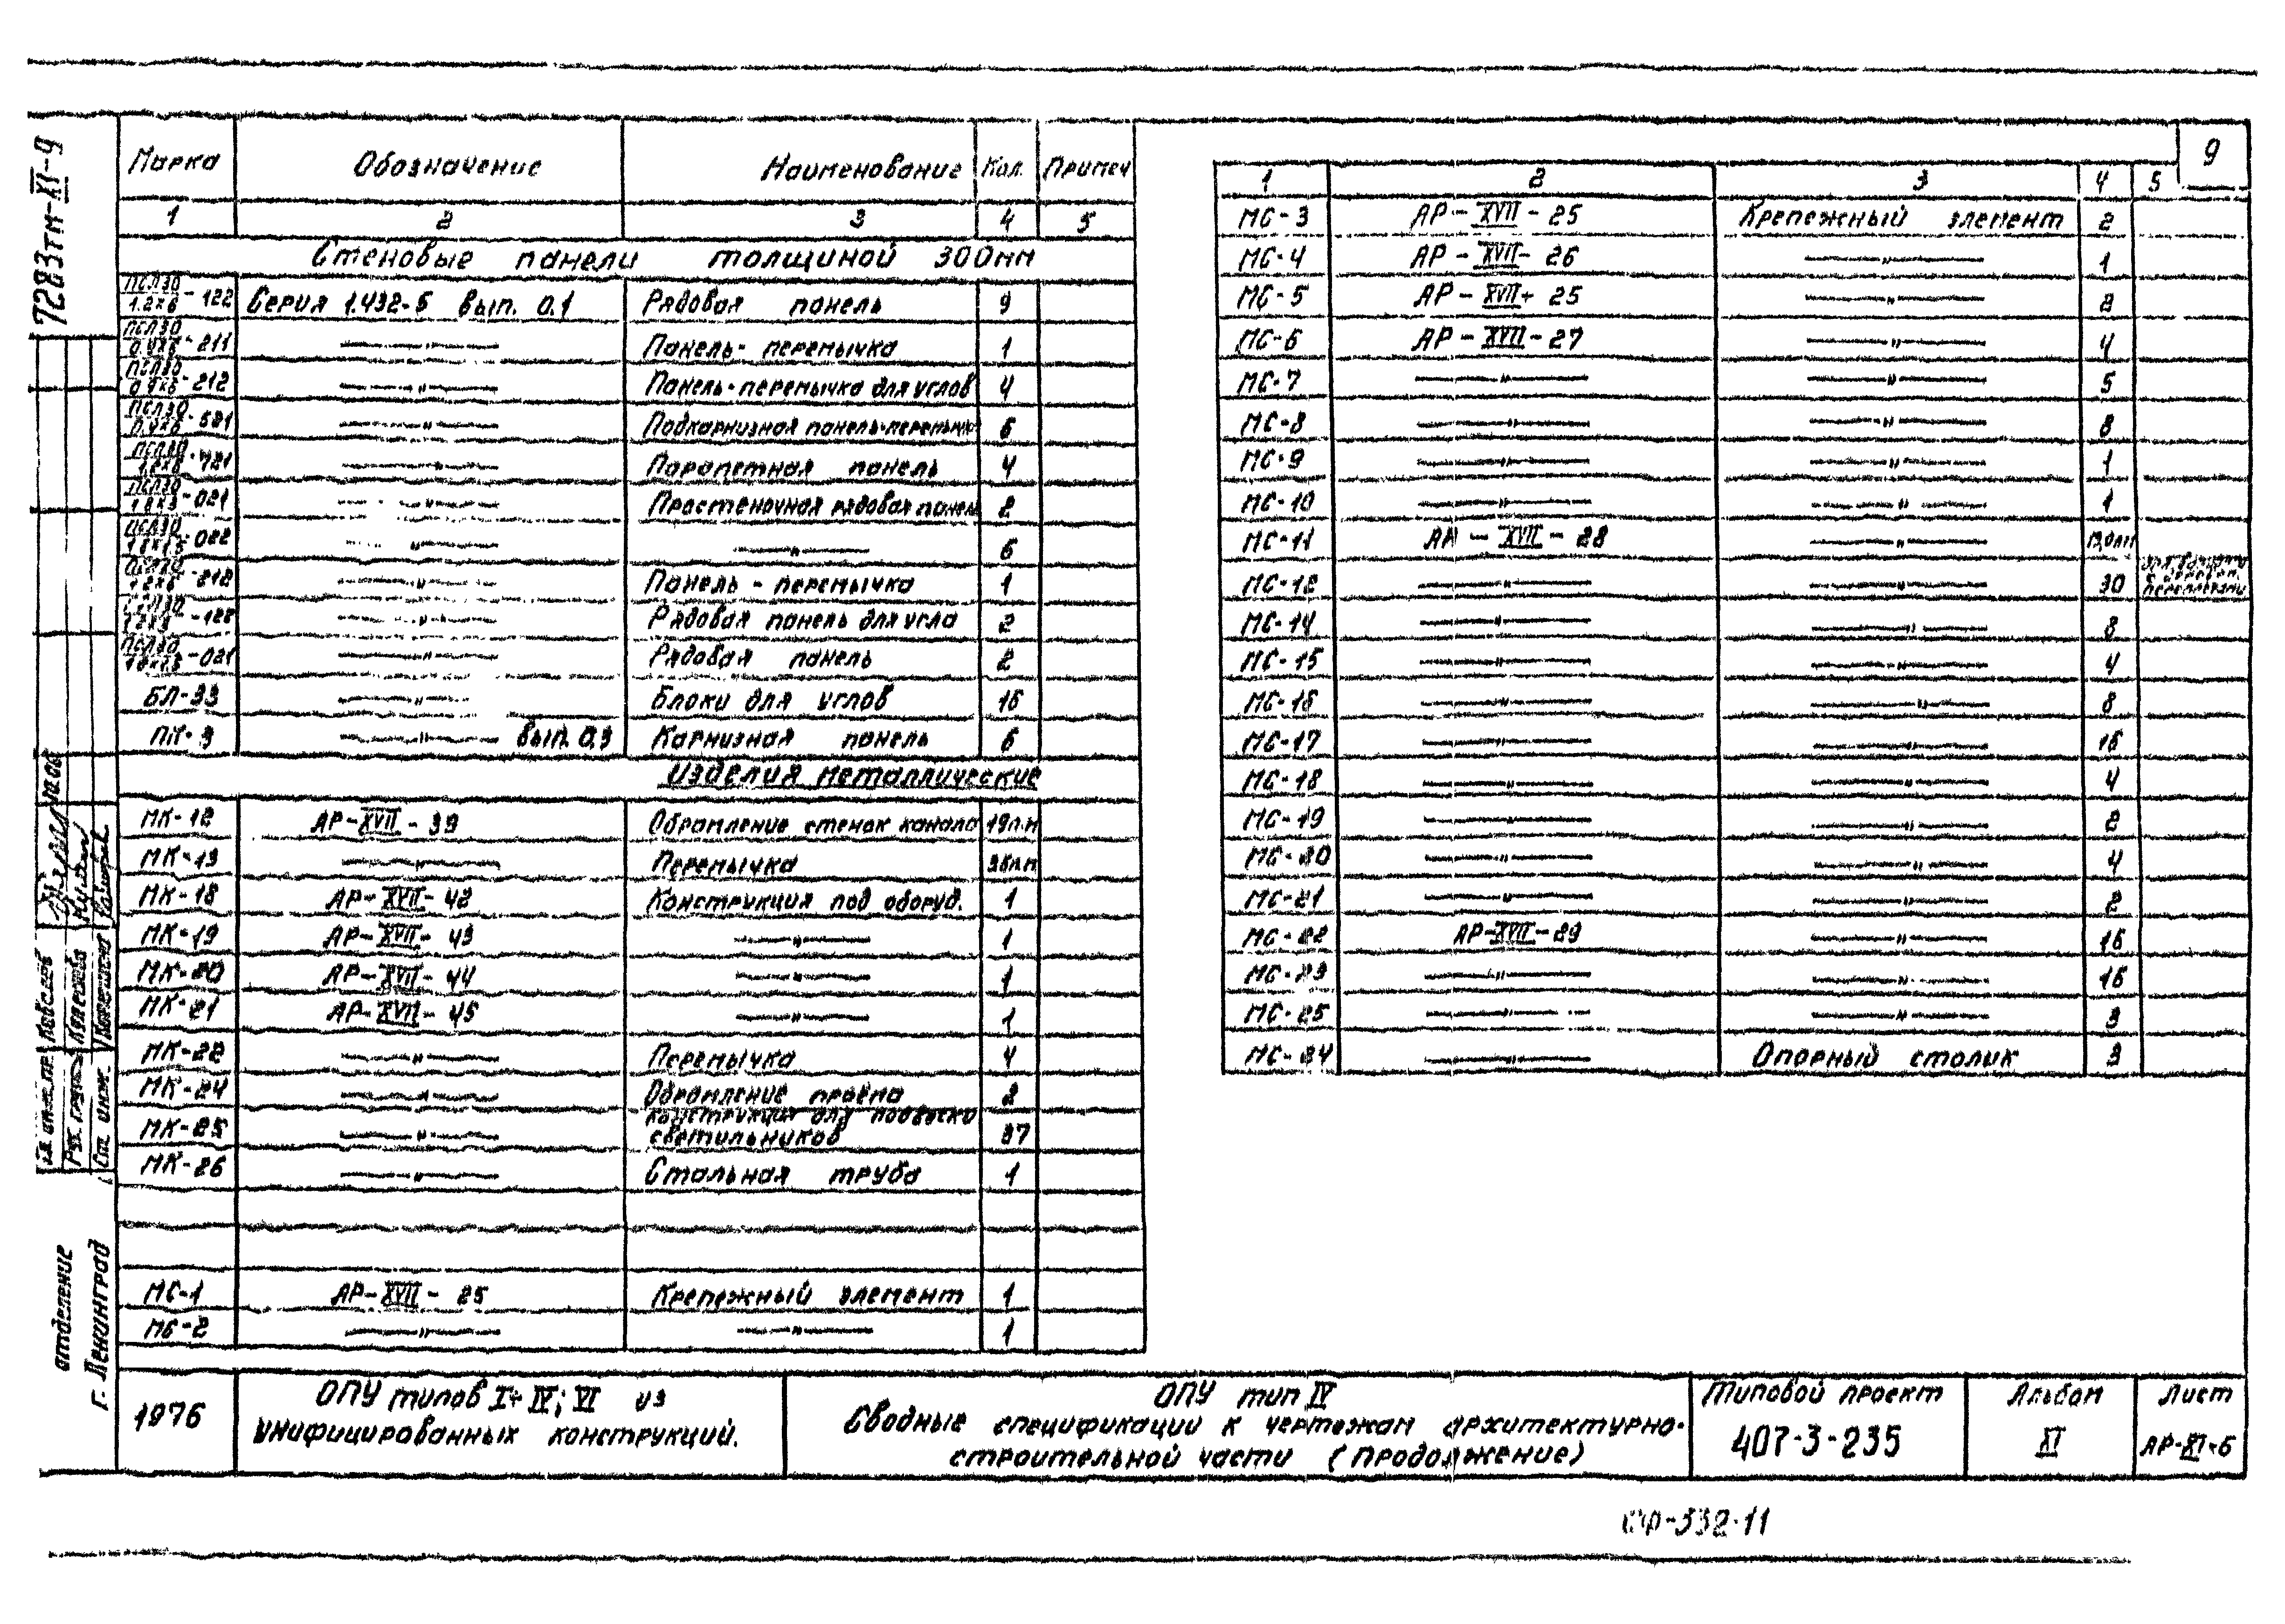 7283тм-XI-9
9
Марка Обозначение Наименование Кол. Примеч
1 2 3 4 5
Стеновые панели толщиной 300мм
ПСЛ30 1.2×6 -122 Серия 1.432-5 вып. 0.1 Рядовая панель 9
ПСЛ30 -211 —"— Панель-перемычка 1
ПСЛ30 -212 —"— Панель-перемычка для углов 4
ПСЛ30 -521 —"— Подкарнизная панель-перемычка 6
ПСЛ30 1.2×6 -721 —"— Парапетная панель 4
ПСЛ30 -021 —"— Простеночная рядовая панель 2
ПСЛ30 -022 —"— —"— 6
ПСЛ30 -212 —"— Панель-перемычка 1
ПСЛ30 -122 —"— Рядовая панель для угла 2
ПСЛ30 -021 —"— Рядовая панель 2
БЛ-33 —"— Блоки для углов 16
ПК-3 —"— вып. 0.3 Карнизная панель 6
Изделия металлические
МК-12 АР-XVII-39 Обрамление стенок канала 19п.м
МК-13 —"— Перемычка 36п.м
МК-18 АР-XVII-42 Конструкция под оборуд. 1
МК-19 АР-XVII-43 —"— 1
МК-20 АР-XVII-44 —"— 1
МК-21 АР-XVII-45 —"— 1
МК-22 —"— Перемычка 4
МК-24 —"— Обрамление проёма 2
МК-25 —"— Конструкция для подвески светильников 37
МК-26 —"— Стальная труба 1
МС-1 АР-XVII-25 Крепежный элемент 1
МС-2 —"— —"— 1
1 2 3 4 5
МС-3 АР-XVII-25 Крепежный элемент 2
МС-4 АР-XVII-26 —"— 1
МС-5 АР-XVII-25 —"— 2
МС-6 АР-XVII-27 —"— 4
МС-7 —"— —"— 5
МС-8 —"— —"— 8
МС-9 —"— —"— 1
МС-10 —"— —"— 1
МС-11 АР-XVII-28 —"—
МС-12 —"— —"— 30
МС-14 —"— —"— 8
МС-15 —"— —"— 4
МС-16 —"— —"— 8
МС-17 —"— —"— 16
МС-18 —"— —"— 4
МС-19 —"— —"— 2
МС-20 —"— —"— 4
МС-21 —"— —"— 2
МС-22 АР-XVII-29 —"— 16
МС-23 —"— —"— 16
МС-25 —"— —"— 3
МС-24 —"— Опорный столик 3
Ст. инж.
отделение
г. Ленинград
1976
ОПУ типов I÷IV; VI из
унифицированных конструкций.
ОПУ тип IV
Сводные спецификации к чертежам архитектурно-
строительной части (продолжение)
Типовой проект
407-3-235
Альбом
XI
Лист
АР-XI-6
СФ-332-11